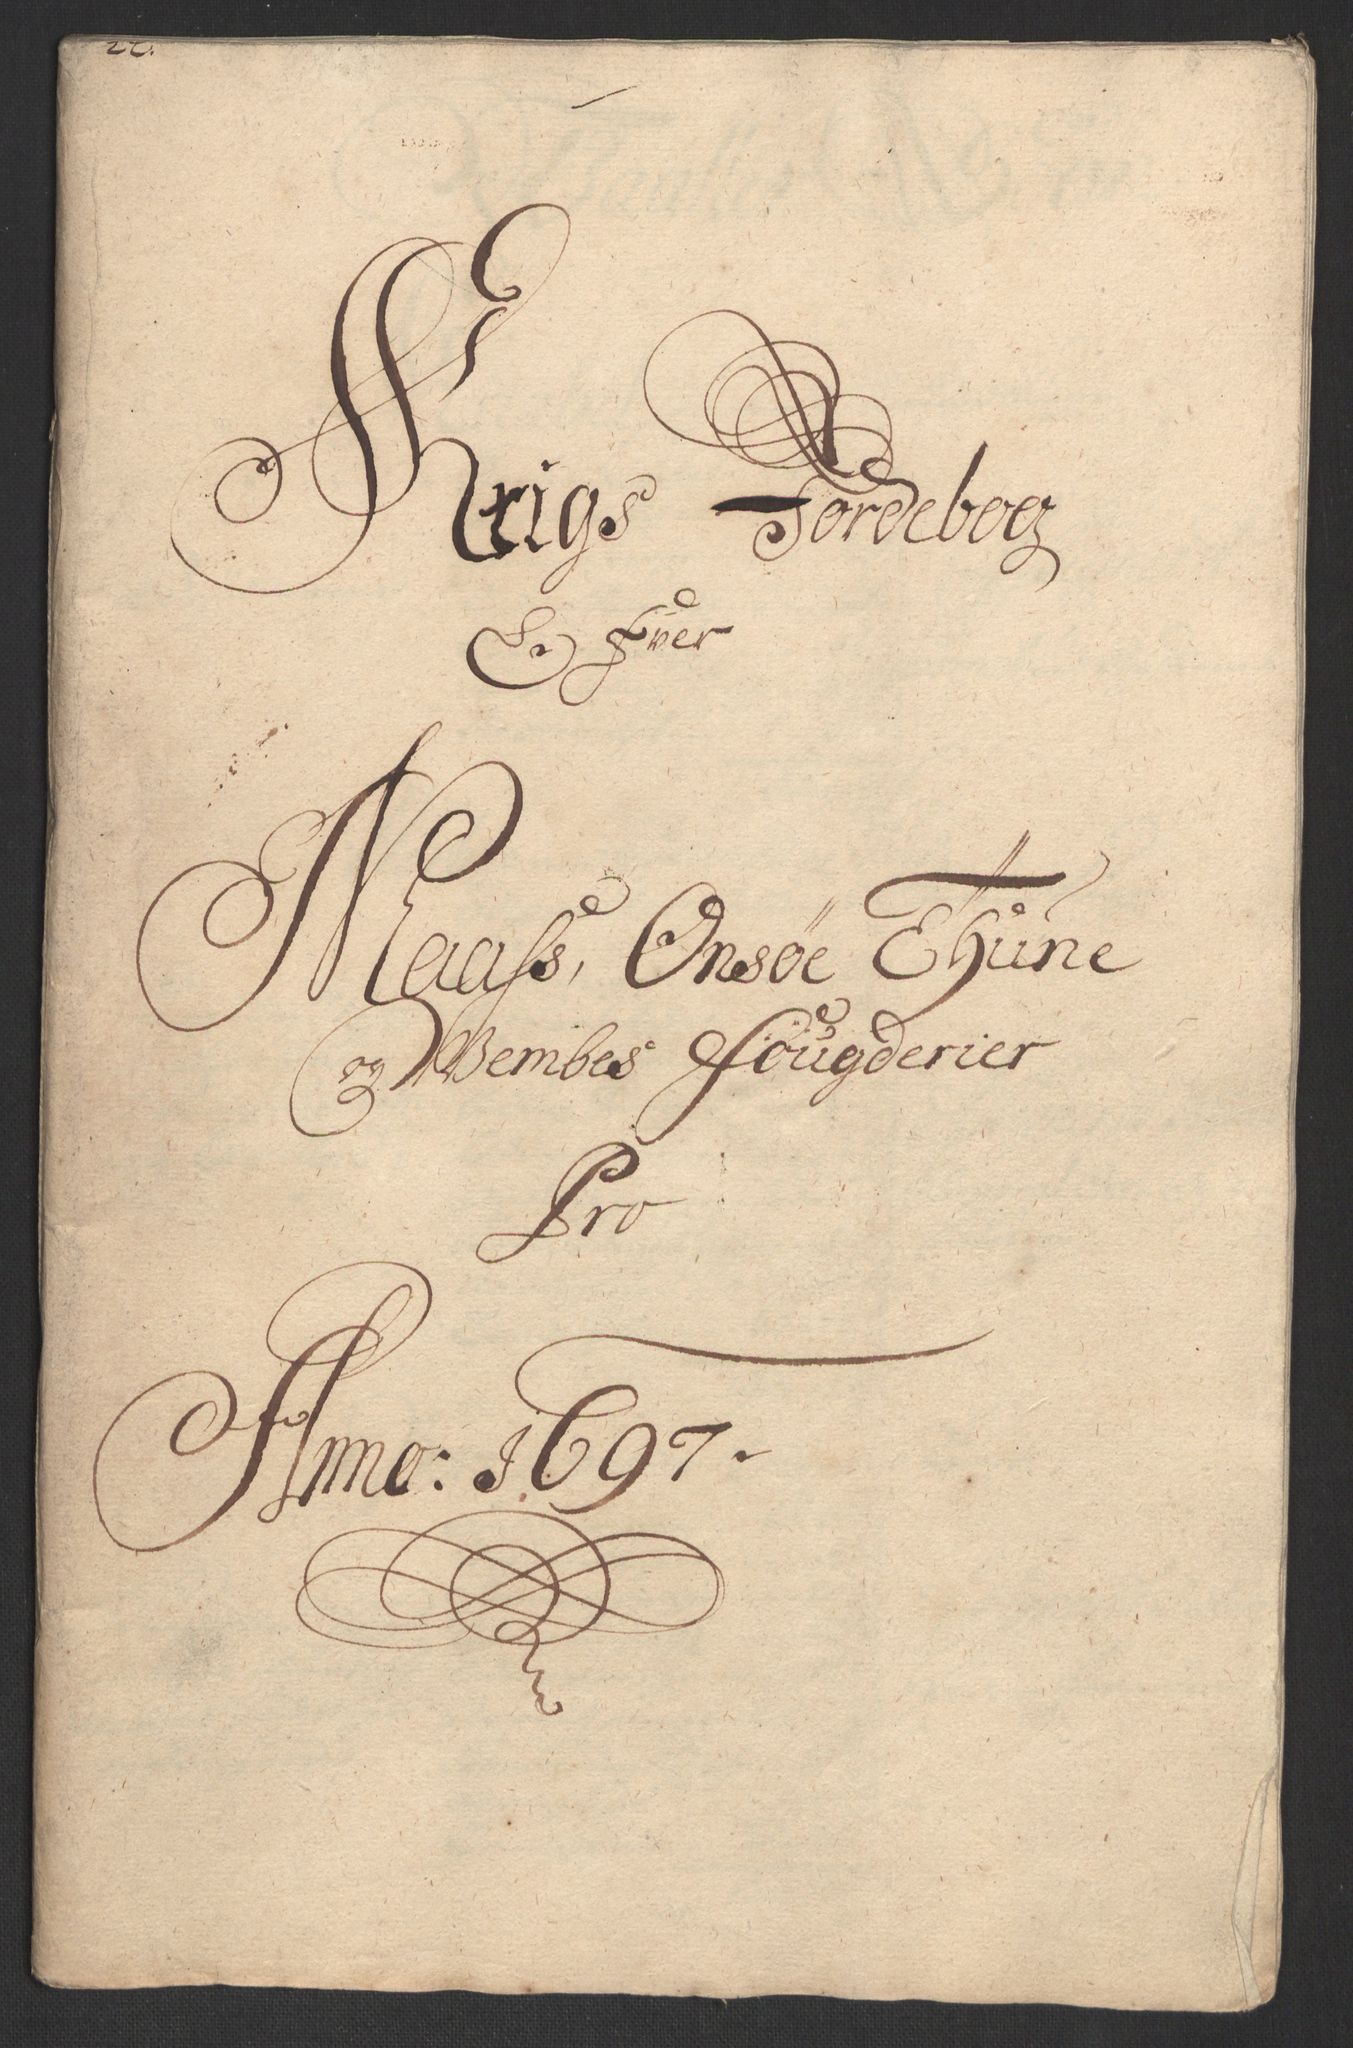 Krigs Jordebog
Ofver
Maass, Onsøe Thüne
og Wembes fougderier
Pro
Anno: 1697.